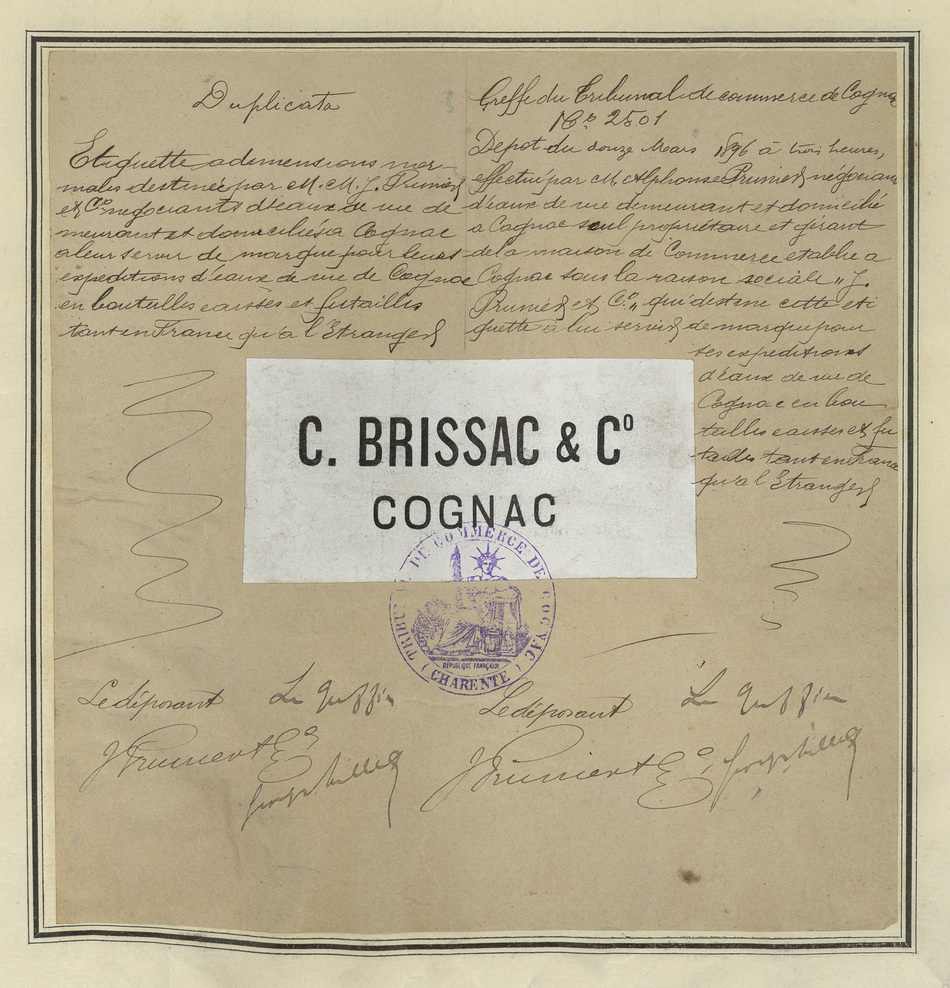 Duplicata
Etiquette a dimensions nor-
males destinée par M. M. J. Prunier
et Cie négociants d'eaux de vie de
meurant et domiciliés à Cognac
a leur servir de marque pour leurs
expeditions d'eaux de vie de Cognac
en bouteilles caisses et futailles
tant en France qu'a l'Etranger
Greffe du Tribunal de commerce de Cognac
No 2501
Depot du douze Mars 1896 à trois heures,
effectué par M. Alphonse Prunier négociant
d'eaux de vie demeurant et domicilié
a Cognac seul propriétaire et gérant
de la maison de Commerce etablie a
Cognac sous la raison sociale „J.
Prunier et Co„ qui destine cette eti
quette à lui servir de marque pour
ses expeditions
d'eaux de vie de
Cognac en bou
teilles caisses et fu
tailles tant en France
qu'a l'Etranger
C. BRISSAC & Co
COGNAC
TRIBUNAL DE COMMERCE DE COGNAC
REPUBLIQUE FRANÇAISE
(CHARENTE)
Le déposant Le Greffier
J Prunier & Co
Le déposant Le Greffier
J Prunier & Co